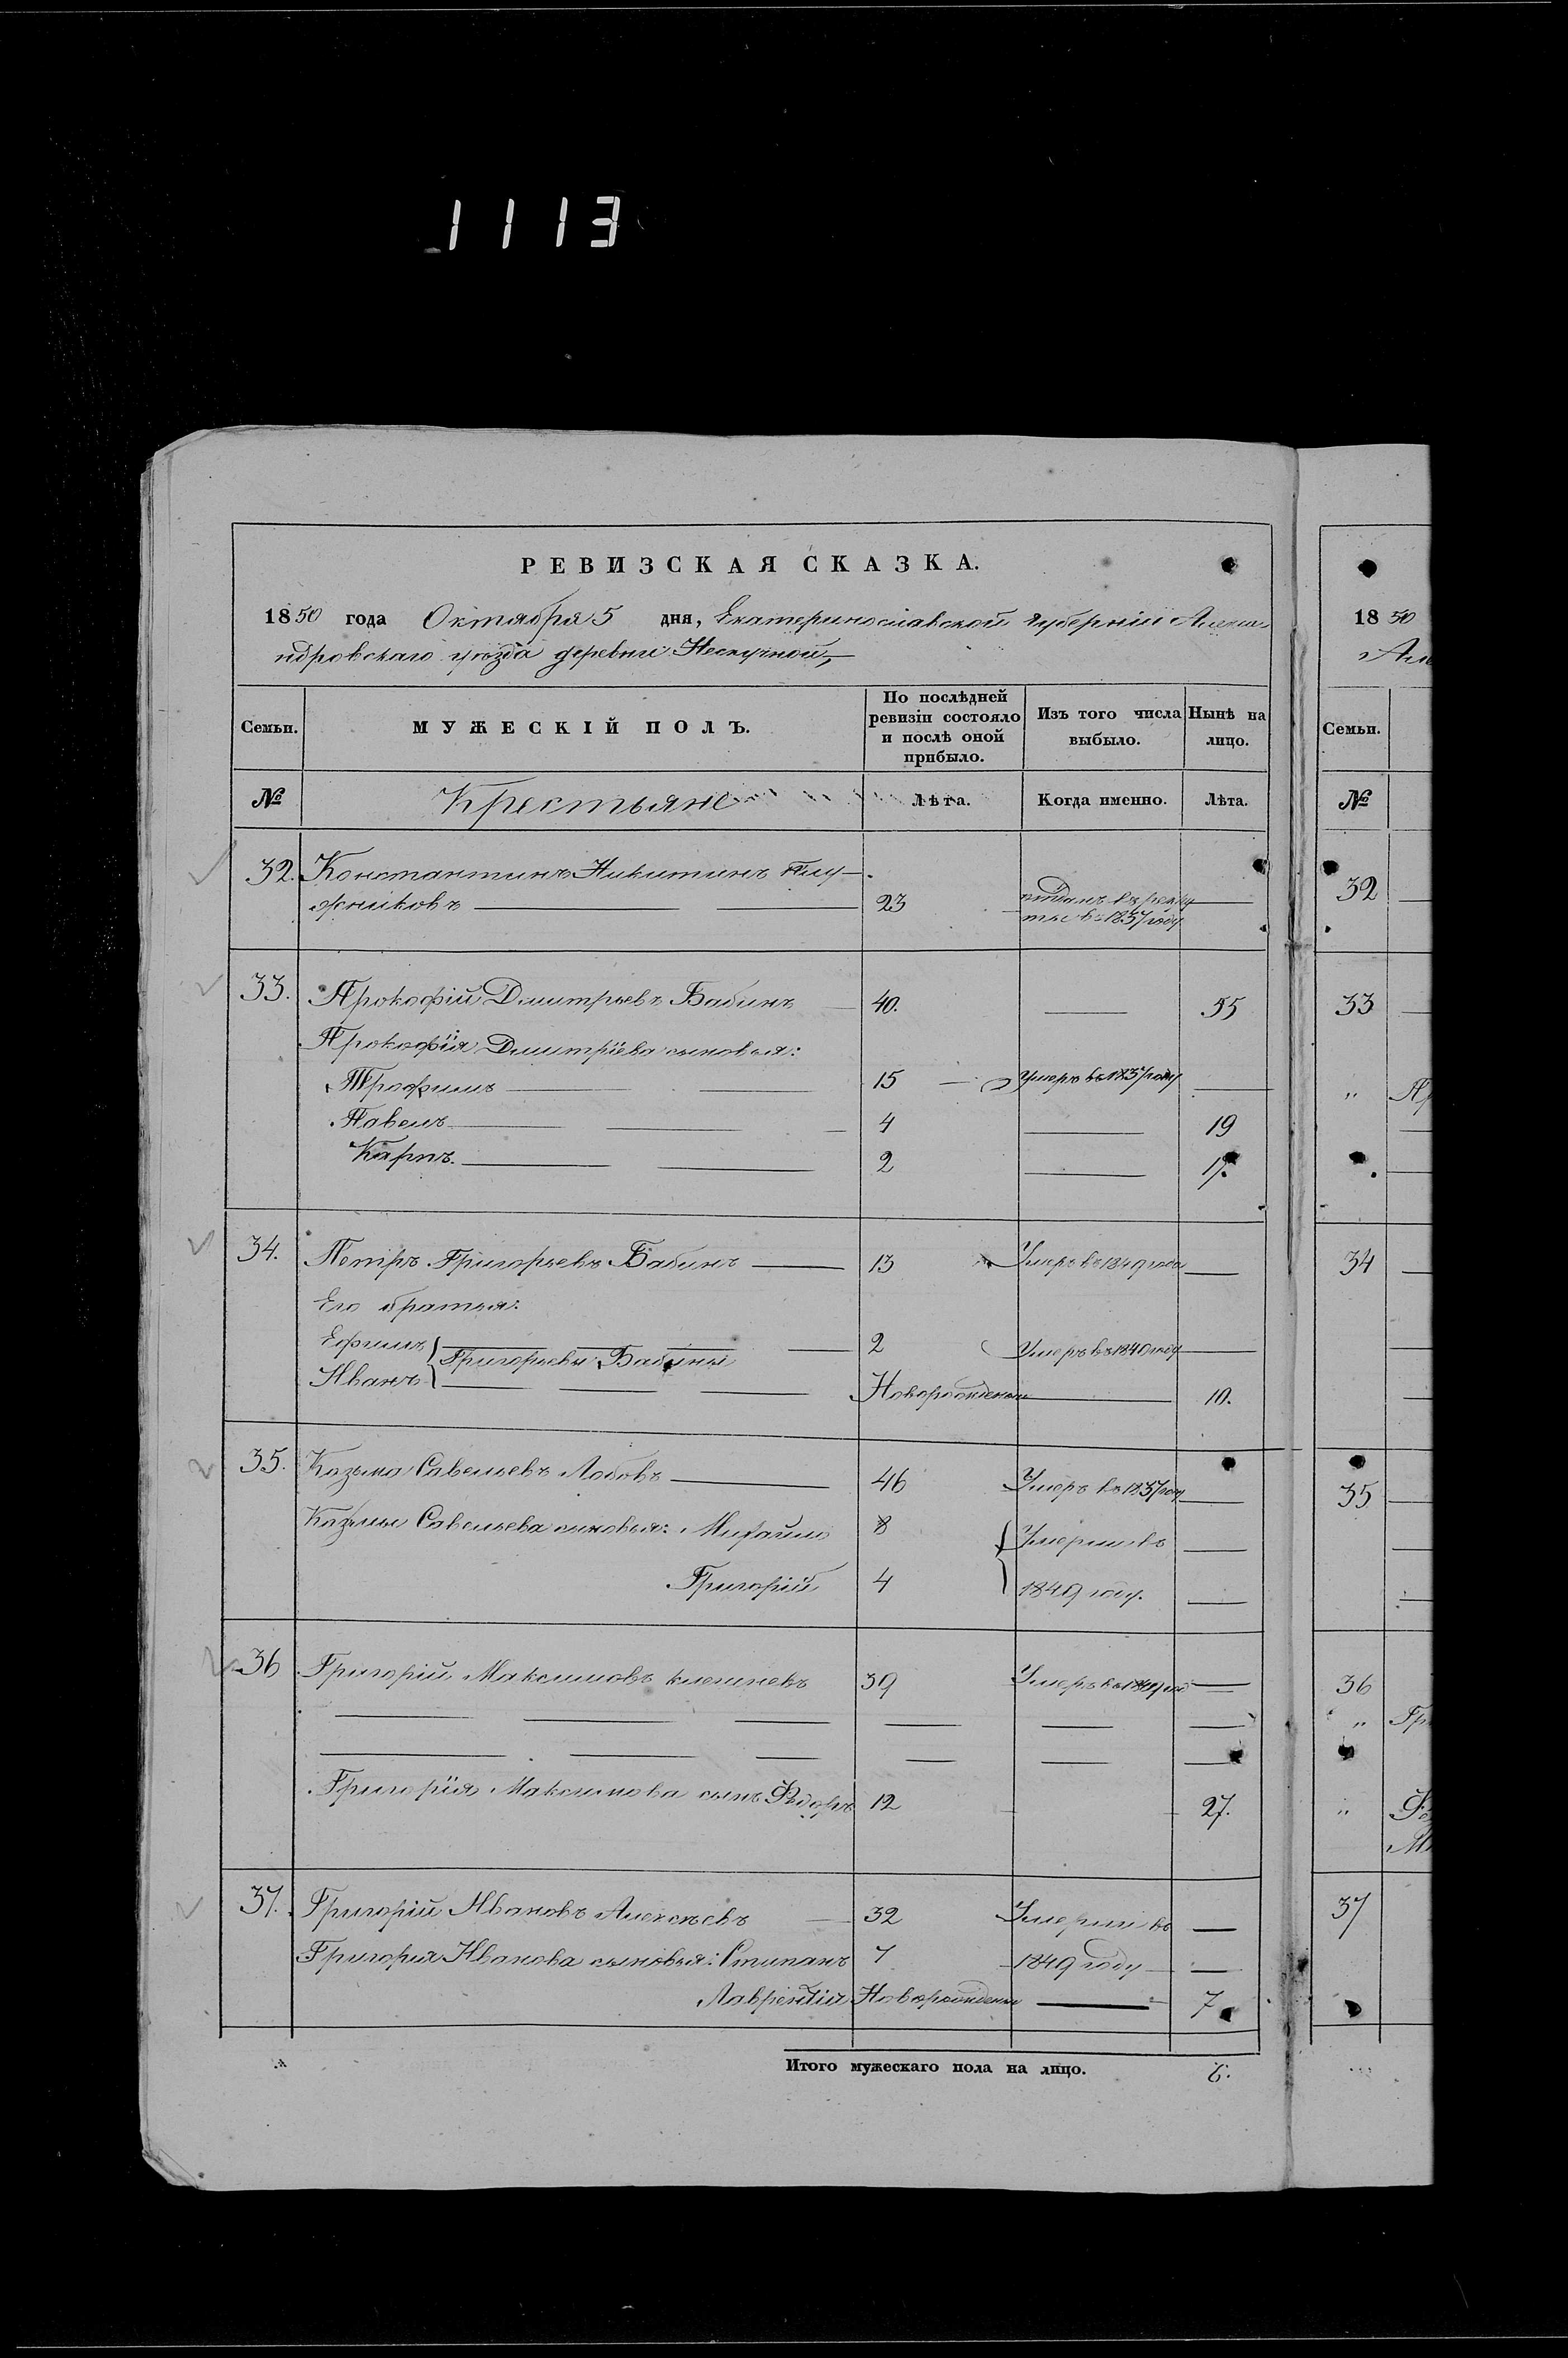 1113
РЕВИЗСКАЯ СКАЗКА.
1850 года Октября 5 дня, Екатеринославской губерніи Алекса
ндровскаго уѣзда деревни Нескучной,
Семьи. МУЖЕСКІЙ ПОЛЪ. По послѣдней ревизіи состояло и послѣ оной прибыло. Изъ того числа выбыло. Нынѣ на лицо.
№ Крестьяне Лѣта. Когда именно. Лѣта.
32. Константинъ Никитинъ Плу-
жниковъ 23 отданъ въ рекру
ты въ 1837 году
33. Прокофій Дмитрьевъ Бабинъ 40. 55
Прокофія Дмитріева сыновья:
Трофимъ 15 Умеръ въ 1837 году
Павелъ 4 19
Карпъ. 2 17.
34. Петръ Григорьевъ Бабинъ 13 Умеръ въ 1849 года
Его братья:
Ефимъ 2 Умеръ въ 1840 году
Григорьевы Бабины
Иванъ Новорожденый 10.
35. Козьма Савельевъ Лобовъ 46 Умеръ въ 1837 году
Козьмы Савельева сыновья: Михайло 8 Умерли въ
Григорій 4 1849 году.
36 Григорій Максимовъ 39 Умеръ въ 1849 год
Григорія Максимова сынъ Фёдоръ 12 27.
37. Григорій Ивановъ Алексѣевъ 32 Умерли въ
Григорія Иванова сыновья: Степанъ 7 1849 году
Лаврентій Новорожденый 7
Итого мужескаго пола на лицо. 6.
1850
Але
Семьи.
№
32
33
" Пр
34
35
36
" Гр
" Фе
М
37